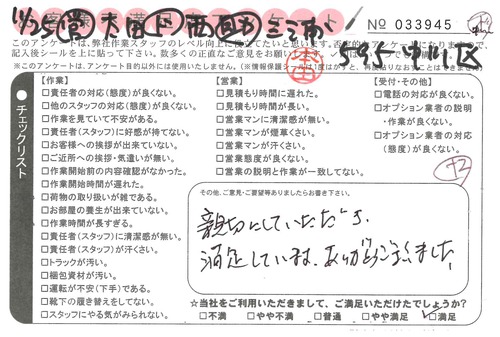 11/25
№ 033945
このアンケートは、弊社作業スタッフのレベル向上に役立てたいと思います。否定的なアンケートになりますので、
記入後シールを上に貼って下さい。数多くの正直なご意見をお願いいたします。
※このアンケートは、アンケート目的以外には使用いたしません。
チェックリスト
【作業】
□責任者の対応(態度)が良くない。
□他のスタッフの対応(態度)が良くない。
□作業を見ていて不安がある。
□責任者(スタッフ)に好感が持てない。
□お客様への挨拶が出来ていない。
□ご近所への挨拶・気遣いが無い。
□作業開始前の内容確認がなかった。
□作業開始時間が遅れた。
□荷物の取り扱いが雑である。
□お部屋の養生が出来ていない。
□作業時間が長すぎる。
□責任者(スタッフ)に清潔感が無い。
□責任者(スタッフ)が汗くさい。
□トラックが汚い。
□梱包資材が汚い。
□運転が不安(下手)である。
□靴下の履き替えをしてない。
□スタッフにやる気がみられない。
【営業】
□見積もり時間に遅れた。
□見積もり時間が長い。
□営業マンに清潔感が無い。
□営業マンが煙草くさい。
□営業マンが汗くさい。
□営業態度が良くない。
□営業の説明と作業が一致してない。
【受付・その他】
□電話の対応が良くない。
□オプション業者の説明
・作業が良くない。
□オプション業者の対応
(態度)が良くない。
その他、ご意見・ご要望等ありましたらお書き下さい。
親切にしていただき
満足しています。ありがとうございました
☆当社をご利用いただきまして、ご満足いただけたでしょうか?
□不満 □やや不満 □普通 □やや満足 ☑満足